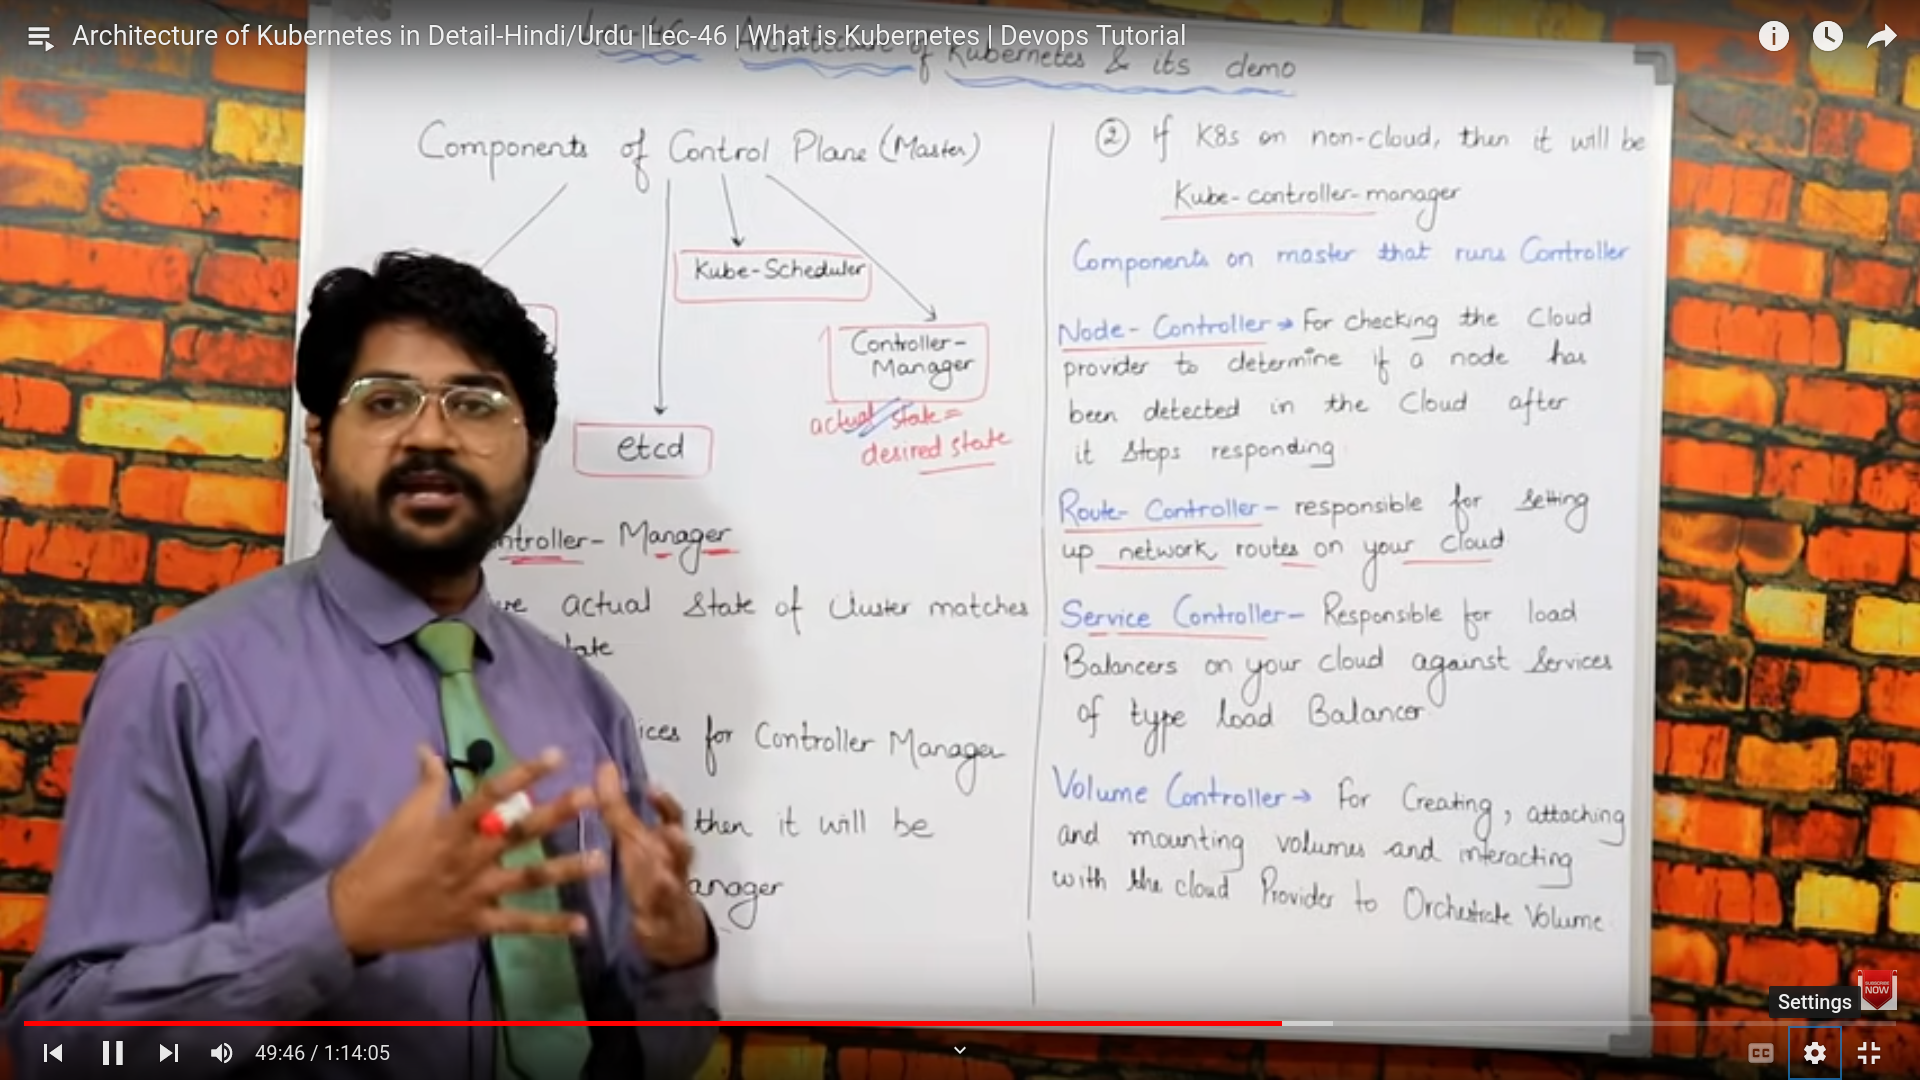 Architecture of Kubernetes in Detail-Hindi/Urdu |Lec-46 | What is Kubernetes | Devops Tutorial
Kubernetes & its demo
Components of Control Plane (Master)
Kube-Scheduler
Controller-
Manager
actual state =
desired state
etcd
ntroller- Manager
actual State of Cluster matches
ices for Controller Manager
then it will be
anager
② If K8s on non-cloud, then it will be
Kube-controller-manager
Components on master that runs Controller
Node-Controller → For checking the Cloud
provider to determine if a node has
been detected in the Cloud after
it stops responding
Route-Controller - responsible for setting
up network, routes on your cloud
Service Controller - Responsible for load
Balancers on your cloud against services
of type load Balancer
Volume Controller → For Creating, attaching
and mounting volumes and interacting
with the cloud Provider to Orchestrate Volume.
SUBSCRIBE
NOW
Settings
49:46 / 1:14:05
CC